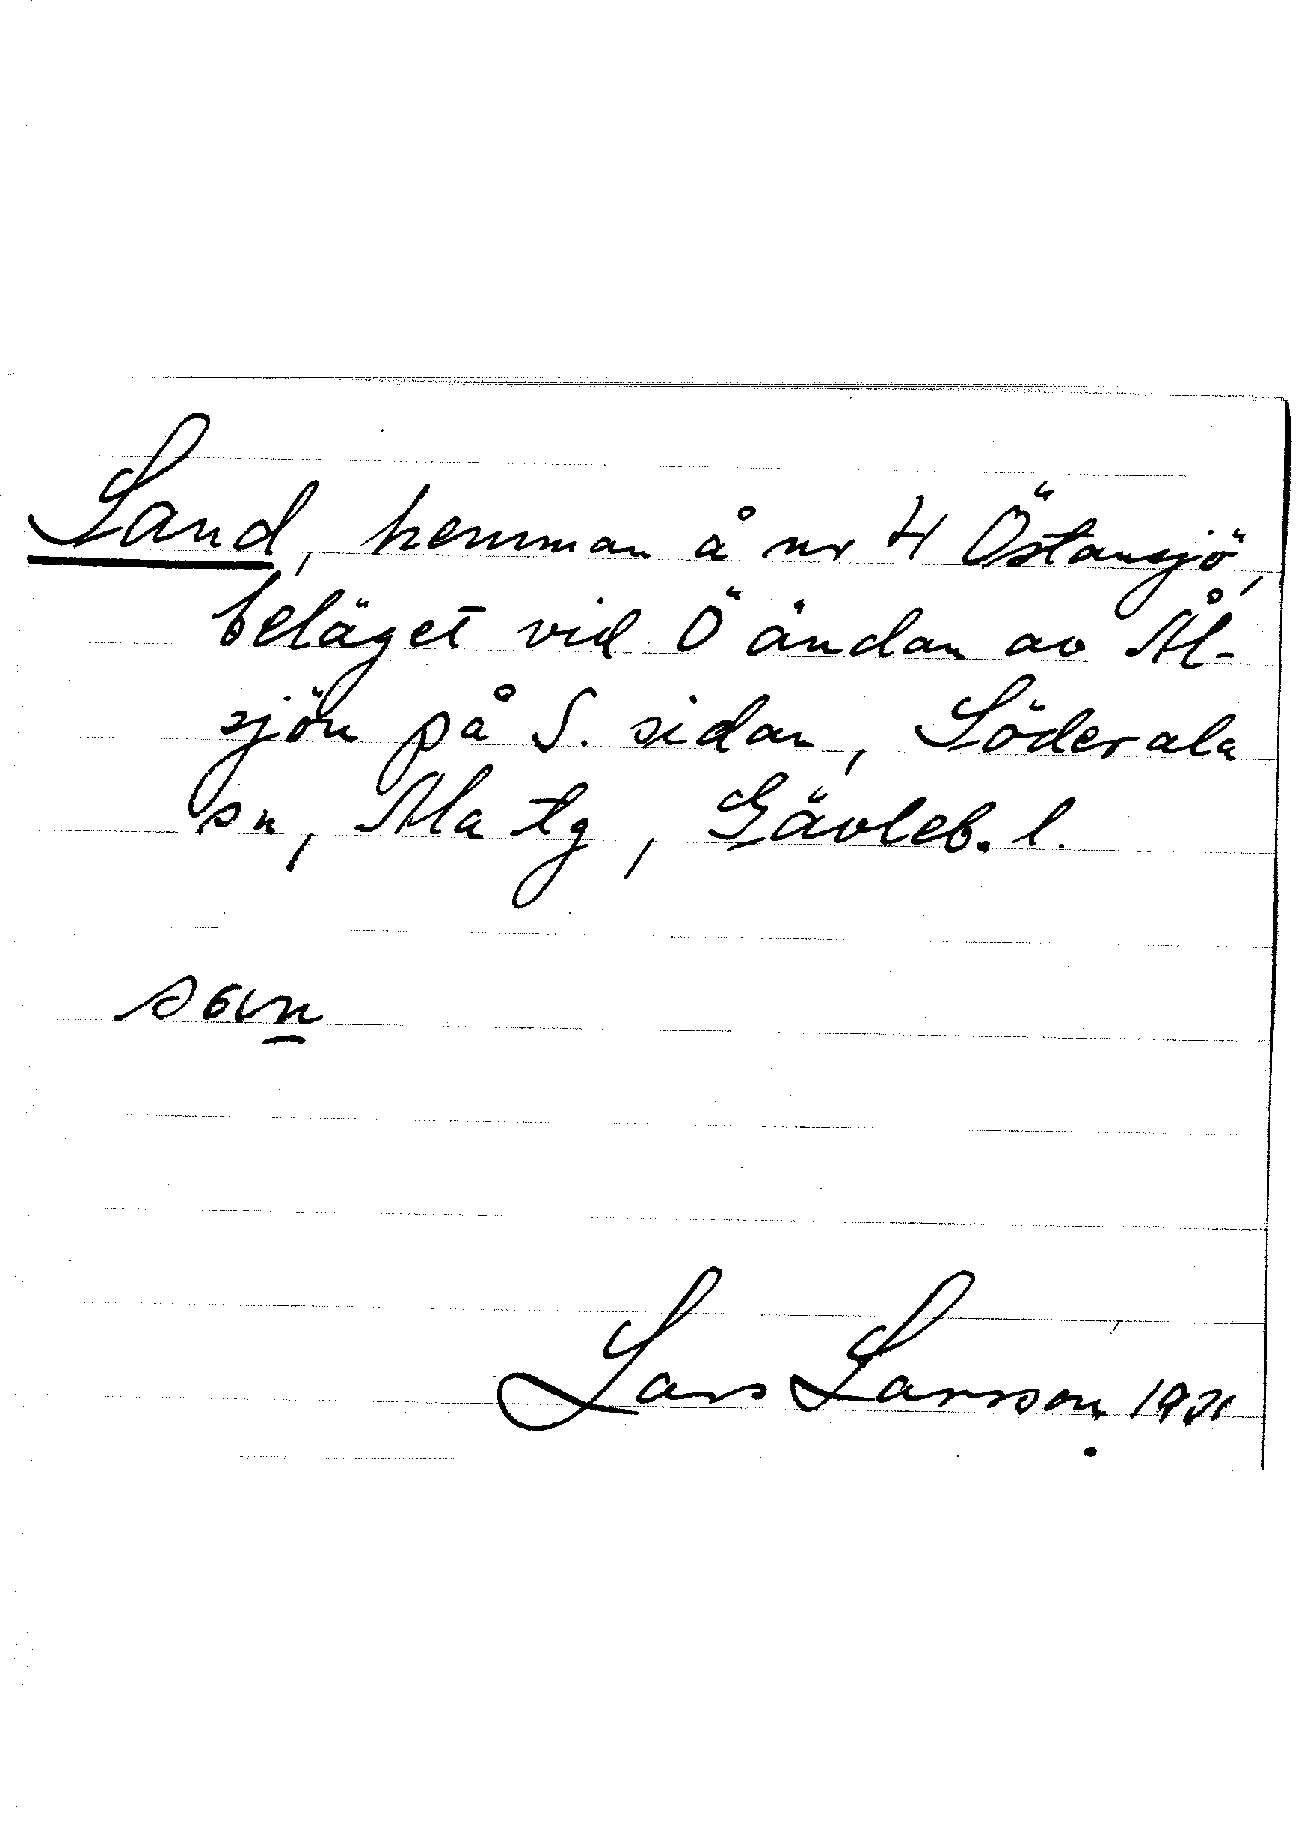 Sand, hemman å nr 4 Östansjö,
beläget vid Ö ändan av Ål-
sjön på S. sidan, Söderala
sn, Ala tg, Gävleb. l.
san
Lars Larsson 1931